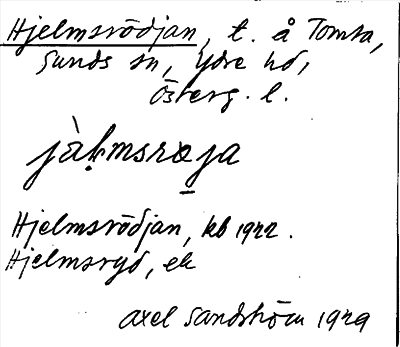 Hjelmsrödjan, t. å Tomta,
Sunds sn, Ydre hd,
Österg. l.
jàḷmsrøja
Hjelmsrödjan, kb 1922.
Hjelmsryd, ek
Axel Sandström 1929